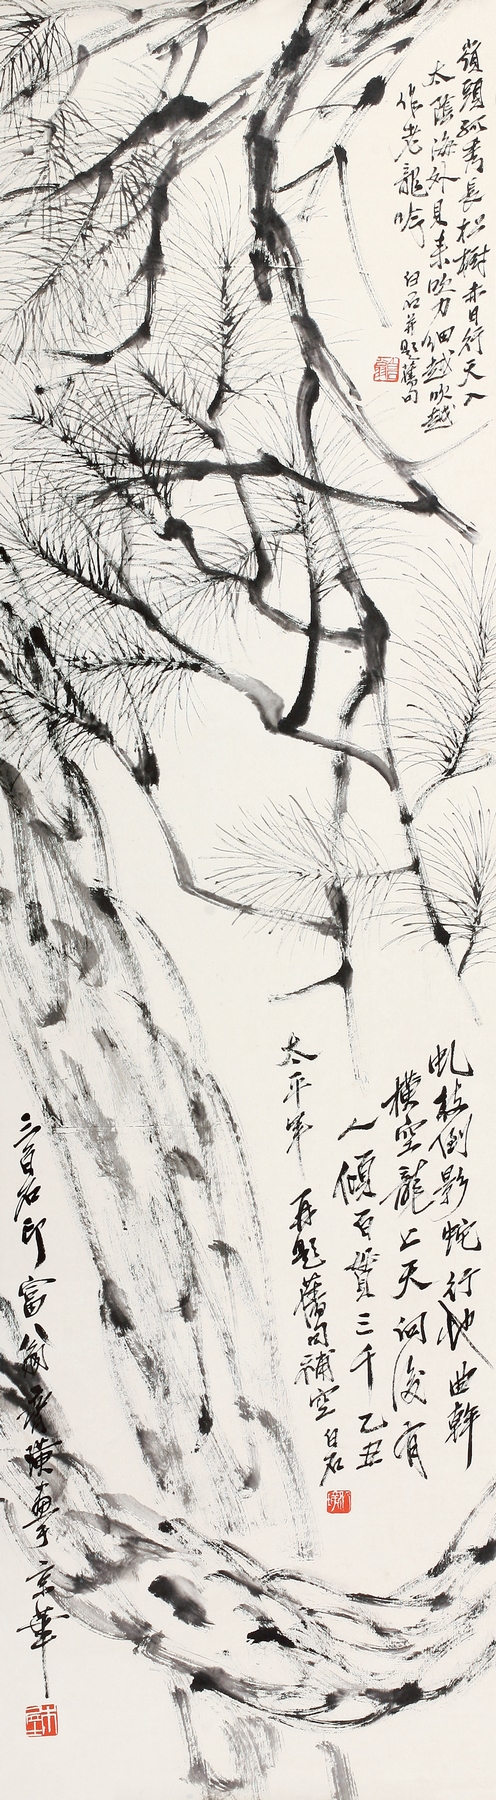 嶺頭孤秀長松樹赤日行天入
太陰海外見來吹力細越吹越
作老龍吟
白石并題舊句
虬枝倒影蛇行地曲幹
橫空龍上天何後有
人傾百貲三千乙丑
太平年 再題舊句補空白石
三百石印富翁齊璜草京華